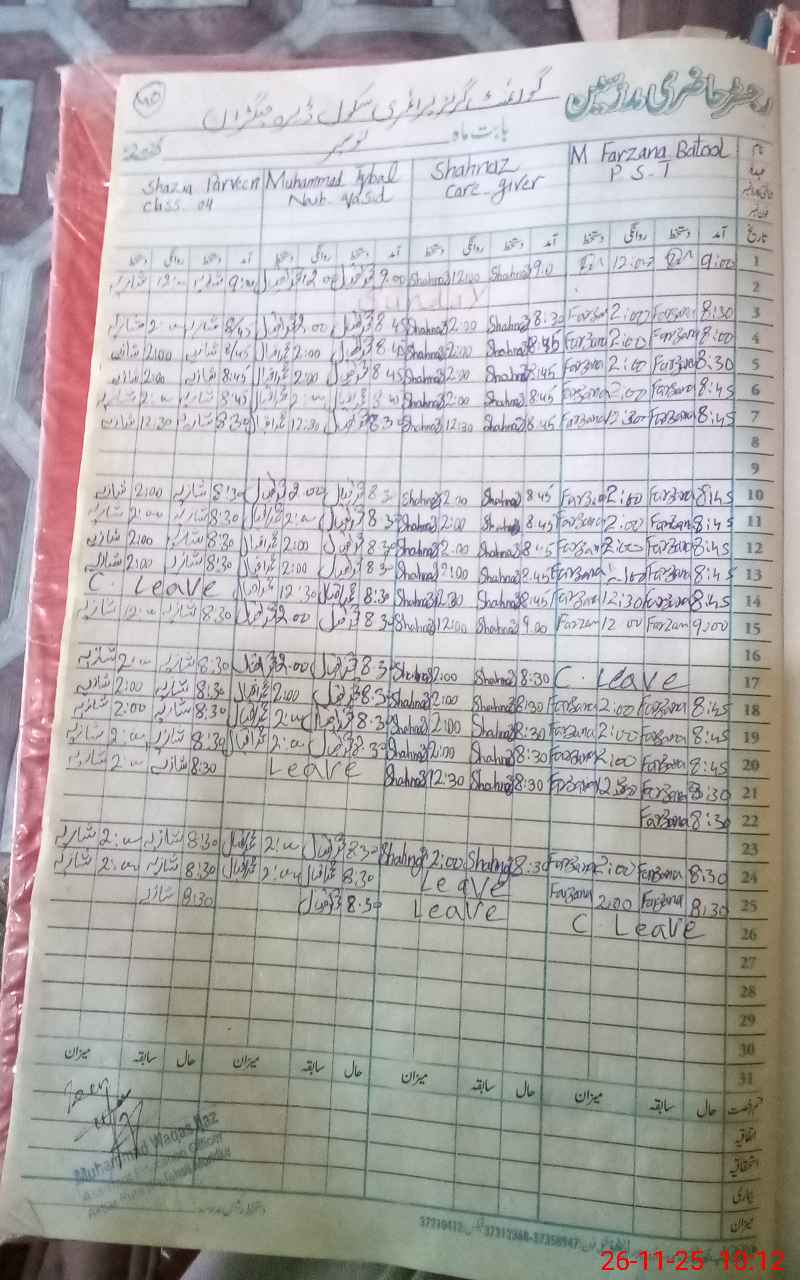 رجسٹر حاضری مدرسین
گورنمنٹ گرلز پرائمری سکول ڈیرہ جنگڑاں
بابت ماہ نومبر
نام
M Farzana Batool Shahnaz Muhammad Iqbal Shazia Parveen
P S T Care giver Naib Qasid Class 04
تاریخ آمد دستخط روانگی دستخط آمد دستخط روانگی دستخط آمد دستخط روانگی دستخط آمد دستخط روانگی دستخط
1 9:00 12:00 9:0 Shahnaz 12:00 Shahnaz 9:00
2 Sunday
3 8:30 Farzana 2:00 Farzana 8:30 Shahnaz 2:00 Shahnaz 8 45 اقبال 2:00 اقبال 8/45 شازیہ 2:00 شازیہ
4 8:00 Farzana 2:00 Farzana 8:45 Shahnaz 2:00 Shahnaz 8 45 اقبال 2:00 اقبال 8/45 شازیہ 2:00 شازیہ
5 8:30 Farzana 2:00 Farzana 8:45 Shahnaz 2:00 Shahnaz 8 45 اقبال 2:00 اقبال 8:45 شازیہ 2:00 شازیہ
6 8:45 Farzana 2:00 Farzana 8:45 Shahnaz 2:00 Shahnaz اقبال 2:00 اقبال 8:45 شازیہ 2:00 شازیہ
7 8:45 Farzana 12:30 Farzana 8:45 Shahnaz 12:30 Shahnaz 8:30 اقبال 12:30 اقبال 8:30 شازیہ 12:30 شازیہ
8
9
10 8:45 Farzana 2:00 Farzana 8 45 Shahnaz 2:00 Shahnaz 8 30 اقبال 2:00 اقبال 8:30 شازیہ 2:00 شازیہ
11 8:45 Farzana 2:00 Farzana 8:45 Shahnaz 2:00 Shahnaz 8 30 اقبال 2:00 اقبال 8:30 شازیہ 2:00 شازیہ
12 8:45 Farzana 2:00 Farzana 8:45 Shahnaz 2:00 Shahnaz 8 30 اقبال 2:00 اقبال 8:30 شازیہ 2:00 شازیہ
13 8:45 Farzana 2:00 Farzana 8:45 Shahnaz 2:00 Shahnaz 8 30 اقبال 2:00 اقبال 8:30 شازیہ 2:00 شازیہ
14 8:45 Farzana 12:30 Farzana 8:45 Shahnaz Shahnaz 8:30 اقبال 12:30 اقبال C. Leave
15 9:00 Farzana 12:00 Farzana 9:00 Shahnaz 12:00 Shahnaz 8 30 اقبال 2:00 اقبال 8:30 شازیہ 12:00 شازیہ
16
17 C. Leave 8:30 Shahnaz 2:00 Shahnaz 8 30 اقبال 2:00 اقبال 8:30 شازیہ 2:00 شازیہ
18 8:45 Farzana 2:00 Farzana 8:30 Shahnaz 2:00 Shahnaz 8:30 اقبال 2:00 اقبال 8:30 شازیہ 2:00 شازیہ
19 8:45 Farzana 2:00 Farzana 8:30 Shahnaz 2:00 Shahnaz 8:30 اقبال 2:00 اقبال 8:30 شازیہ 2:00 شازیہ
20 8:45 Farzana 2:00 Farzana 8:30 Shahnaz 2:00 Shahnaz 8:30 اقبال 2:00 اقبال 8:30 شازیہ 2:00 شازیہ
21 8:30 Farzana 12:30 Farzana 8:30 Shahnaz 12:30 Shahnaz Leave 8:30 شازیہ 2:00 شازیہ
22 8:30 Farzana
23
24 8:30 Farzana 2:00 Farzana 8:30 Shahnaz 2:00 Shahnaz 8:30 اقبال 2:00 اقبال 8:30 شازیہ 2:00 شازیہ
25 8:30 Farzana 2:00 Farzana Leave 8:30 اقبال 2:00 اقبال 8:30 شازیہ 2:00 شازیہ
26 C Leave Leave 8:30 اقبال 8:30 شازیہ
27
28
29
30
31
قسم رخصت حال سابقہ میزان حال سابقہ میزان حال سابقہ میزان حال سابقہ میزان
اتفاقیہ
استحقاقیہ
بیماری
میزان
Muhammad Waqas Riaz
26-11-25 10:12